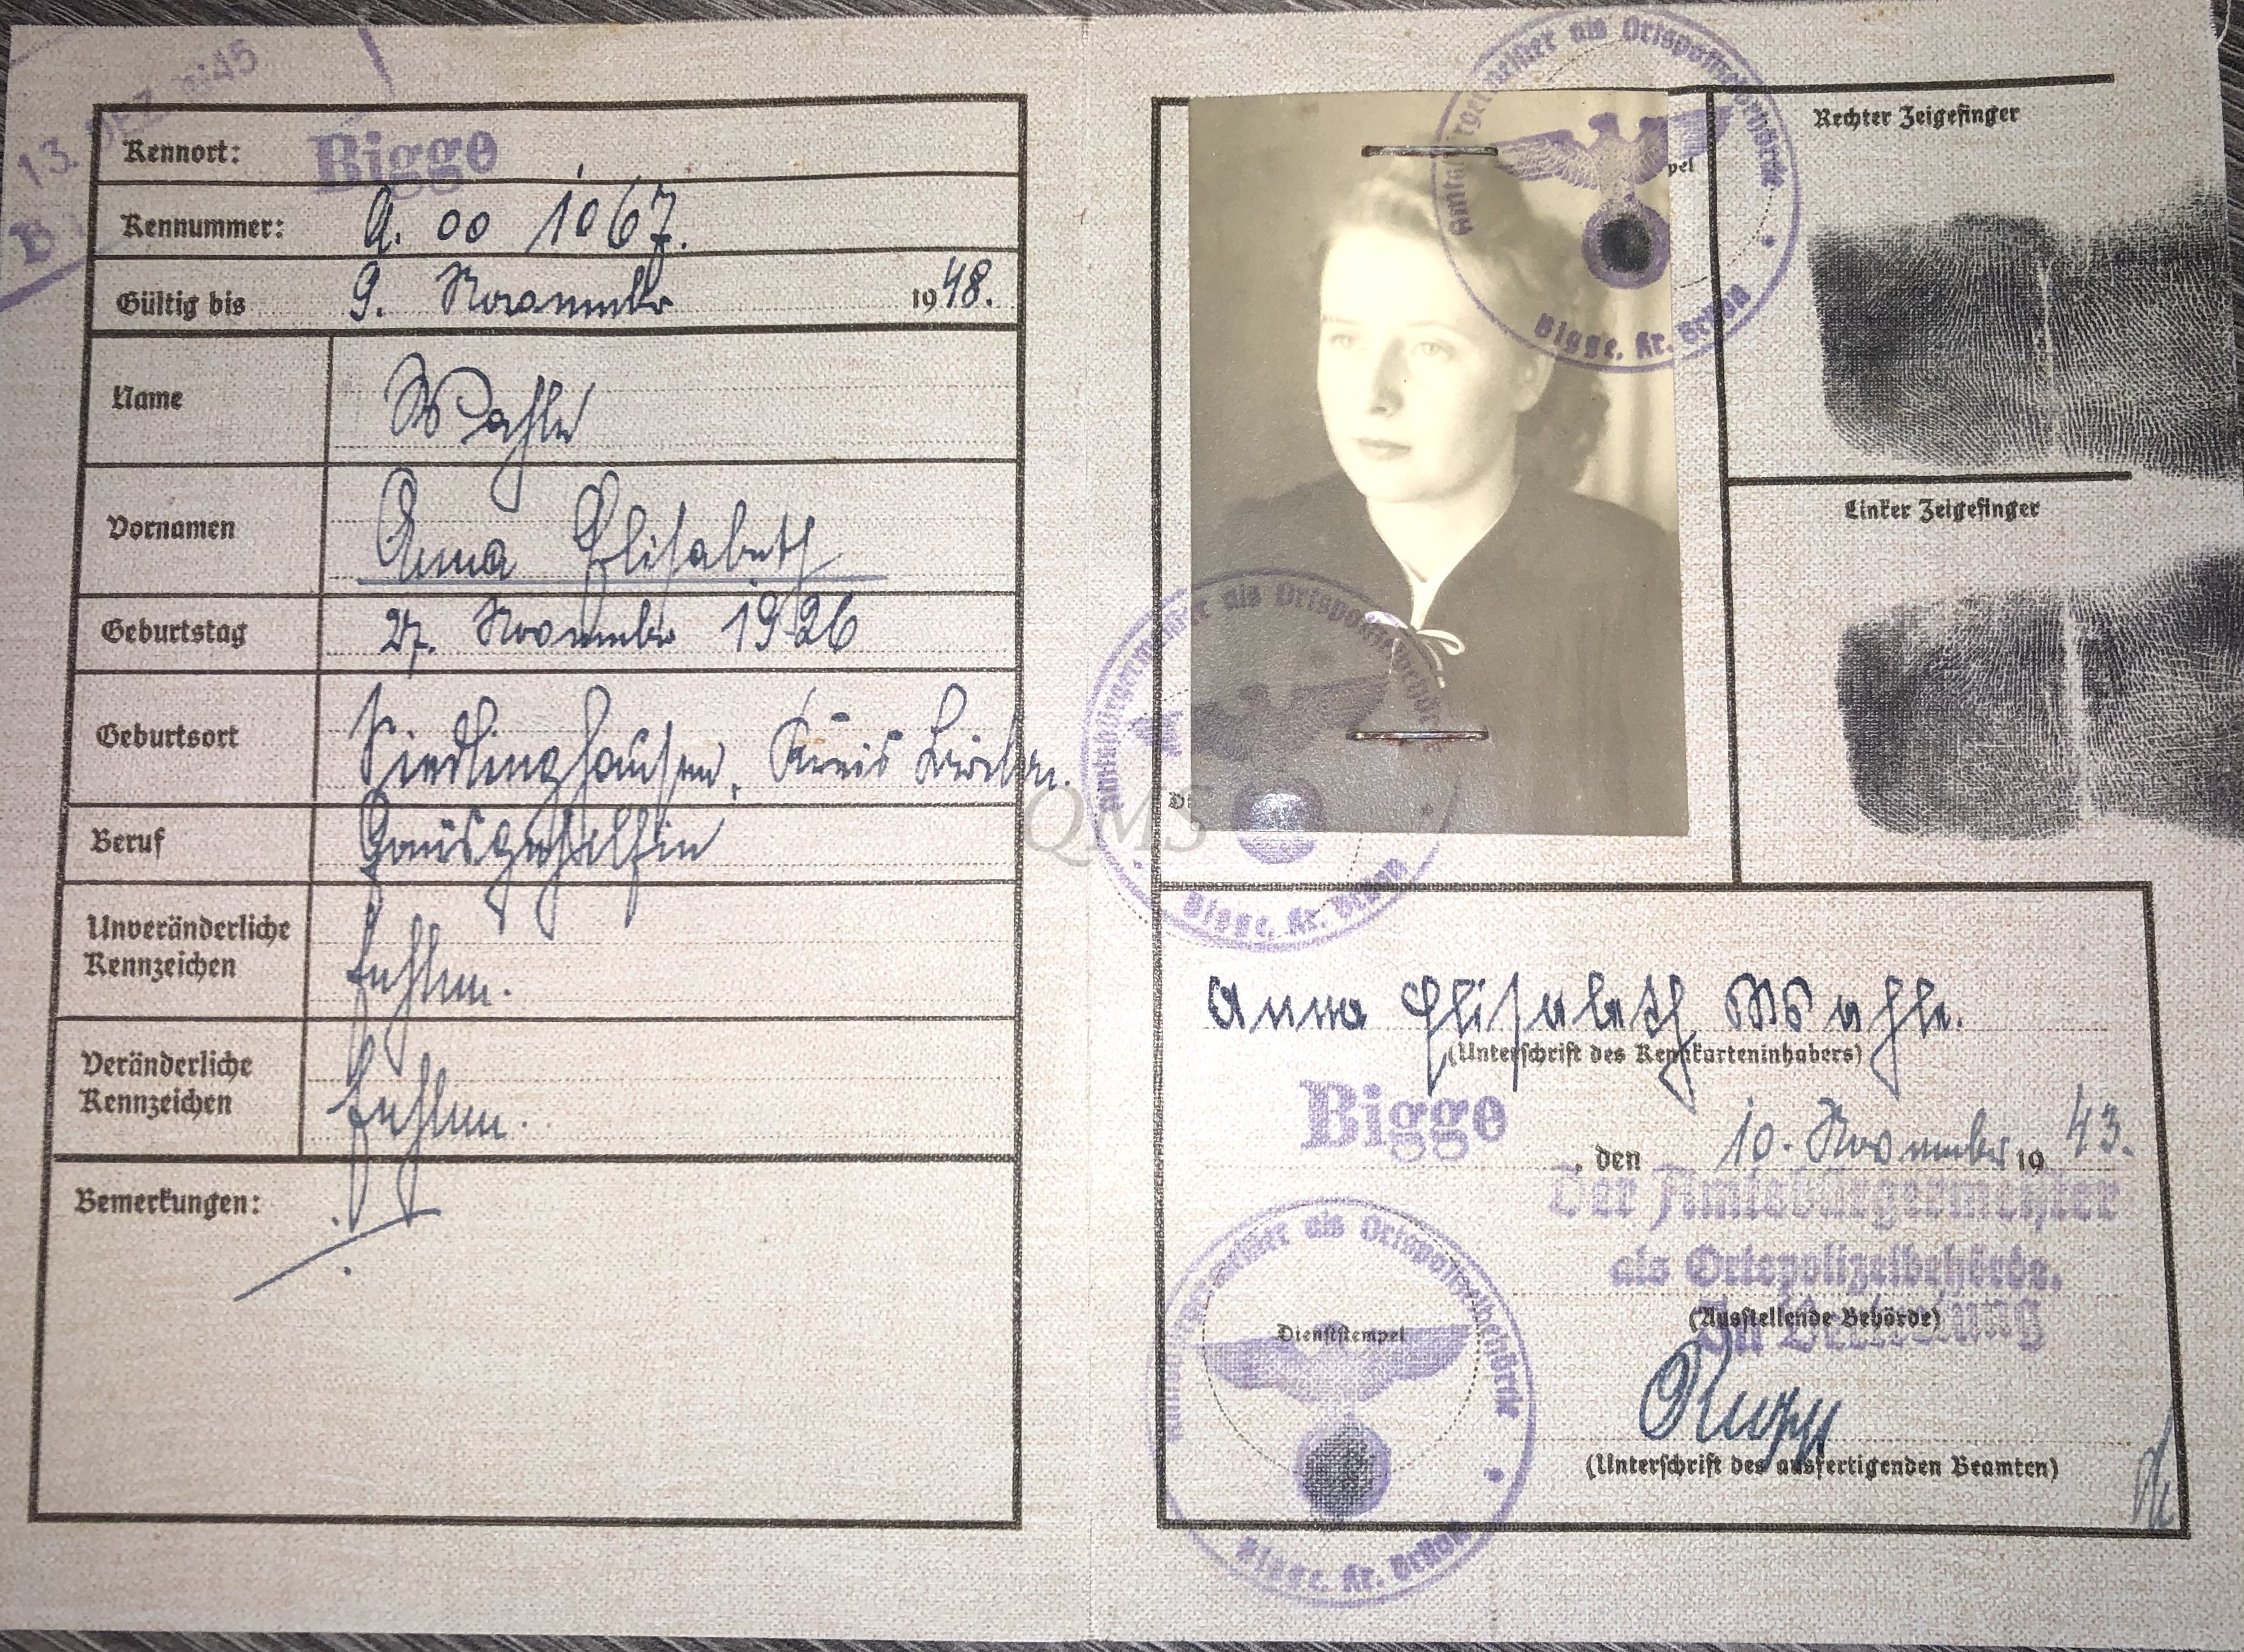 13. DEZ. 1945
B
Kennort: Bigge
Kennummer: A. 00 1067.
Gültig bis 9. November 1948.
Name Wahle
Vornamen Anna Elisabeth
Geburtstag 27. November 1926
Geburtsort Siedlinghausen, Kreis Brilon.
Beruf Hausgehilfin
Unveränderliche
Kennzeichen fehlen.
Veränderliche
Kennzeichen fehlen.
Bemerkungen:
QMS
Amtsbürgermeister als Ortspolizeibehörde
Bigge, Kr. Brilon
pel
Rechter Zeigefinger
Linker Zeigefinger
Amtsbürgermeister als Ortspolizeibehörde
Di
Bigge, Kr. Brilon
Anna Elisabeth Wahle.
(Unterschrift des Kennkarteninhabers)
Bigge, den 10. November 1943.
Der Amtsbürgermeister
als Ortspolizeibehörde.
(Ausstellende Behörde)
In Vertretung
Amtsbürgermeister als Ortspolizeibehörde
Dienststempel
Bigge, Kr. Brilon
(Unterschrift des ausfertigenden Beamten)